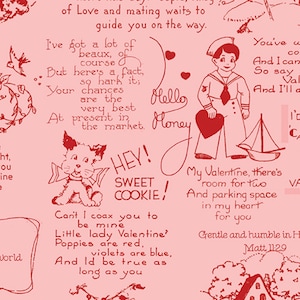 of Love and mating waits to
guide you on the way.
I've got a lot of
beaux, of
course
But here's a fact,
so hark it;
Your chances
are the
very best
At present in
the market.
Hello
Honey
You've
And I can
So say
And I'll
HEY!
SWEET
COOKIE!
Can't I coax you to
be mine
Little lady Valentine?
Poppies are red,
violets are blue,
And I'd be true as
long as you
My Valentine, there's
room for two
And parking space
in my heart
for you
Gentle and humble in H
Matt 11:29
world